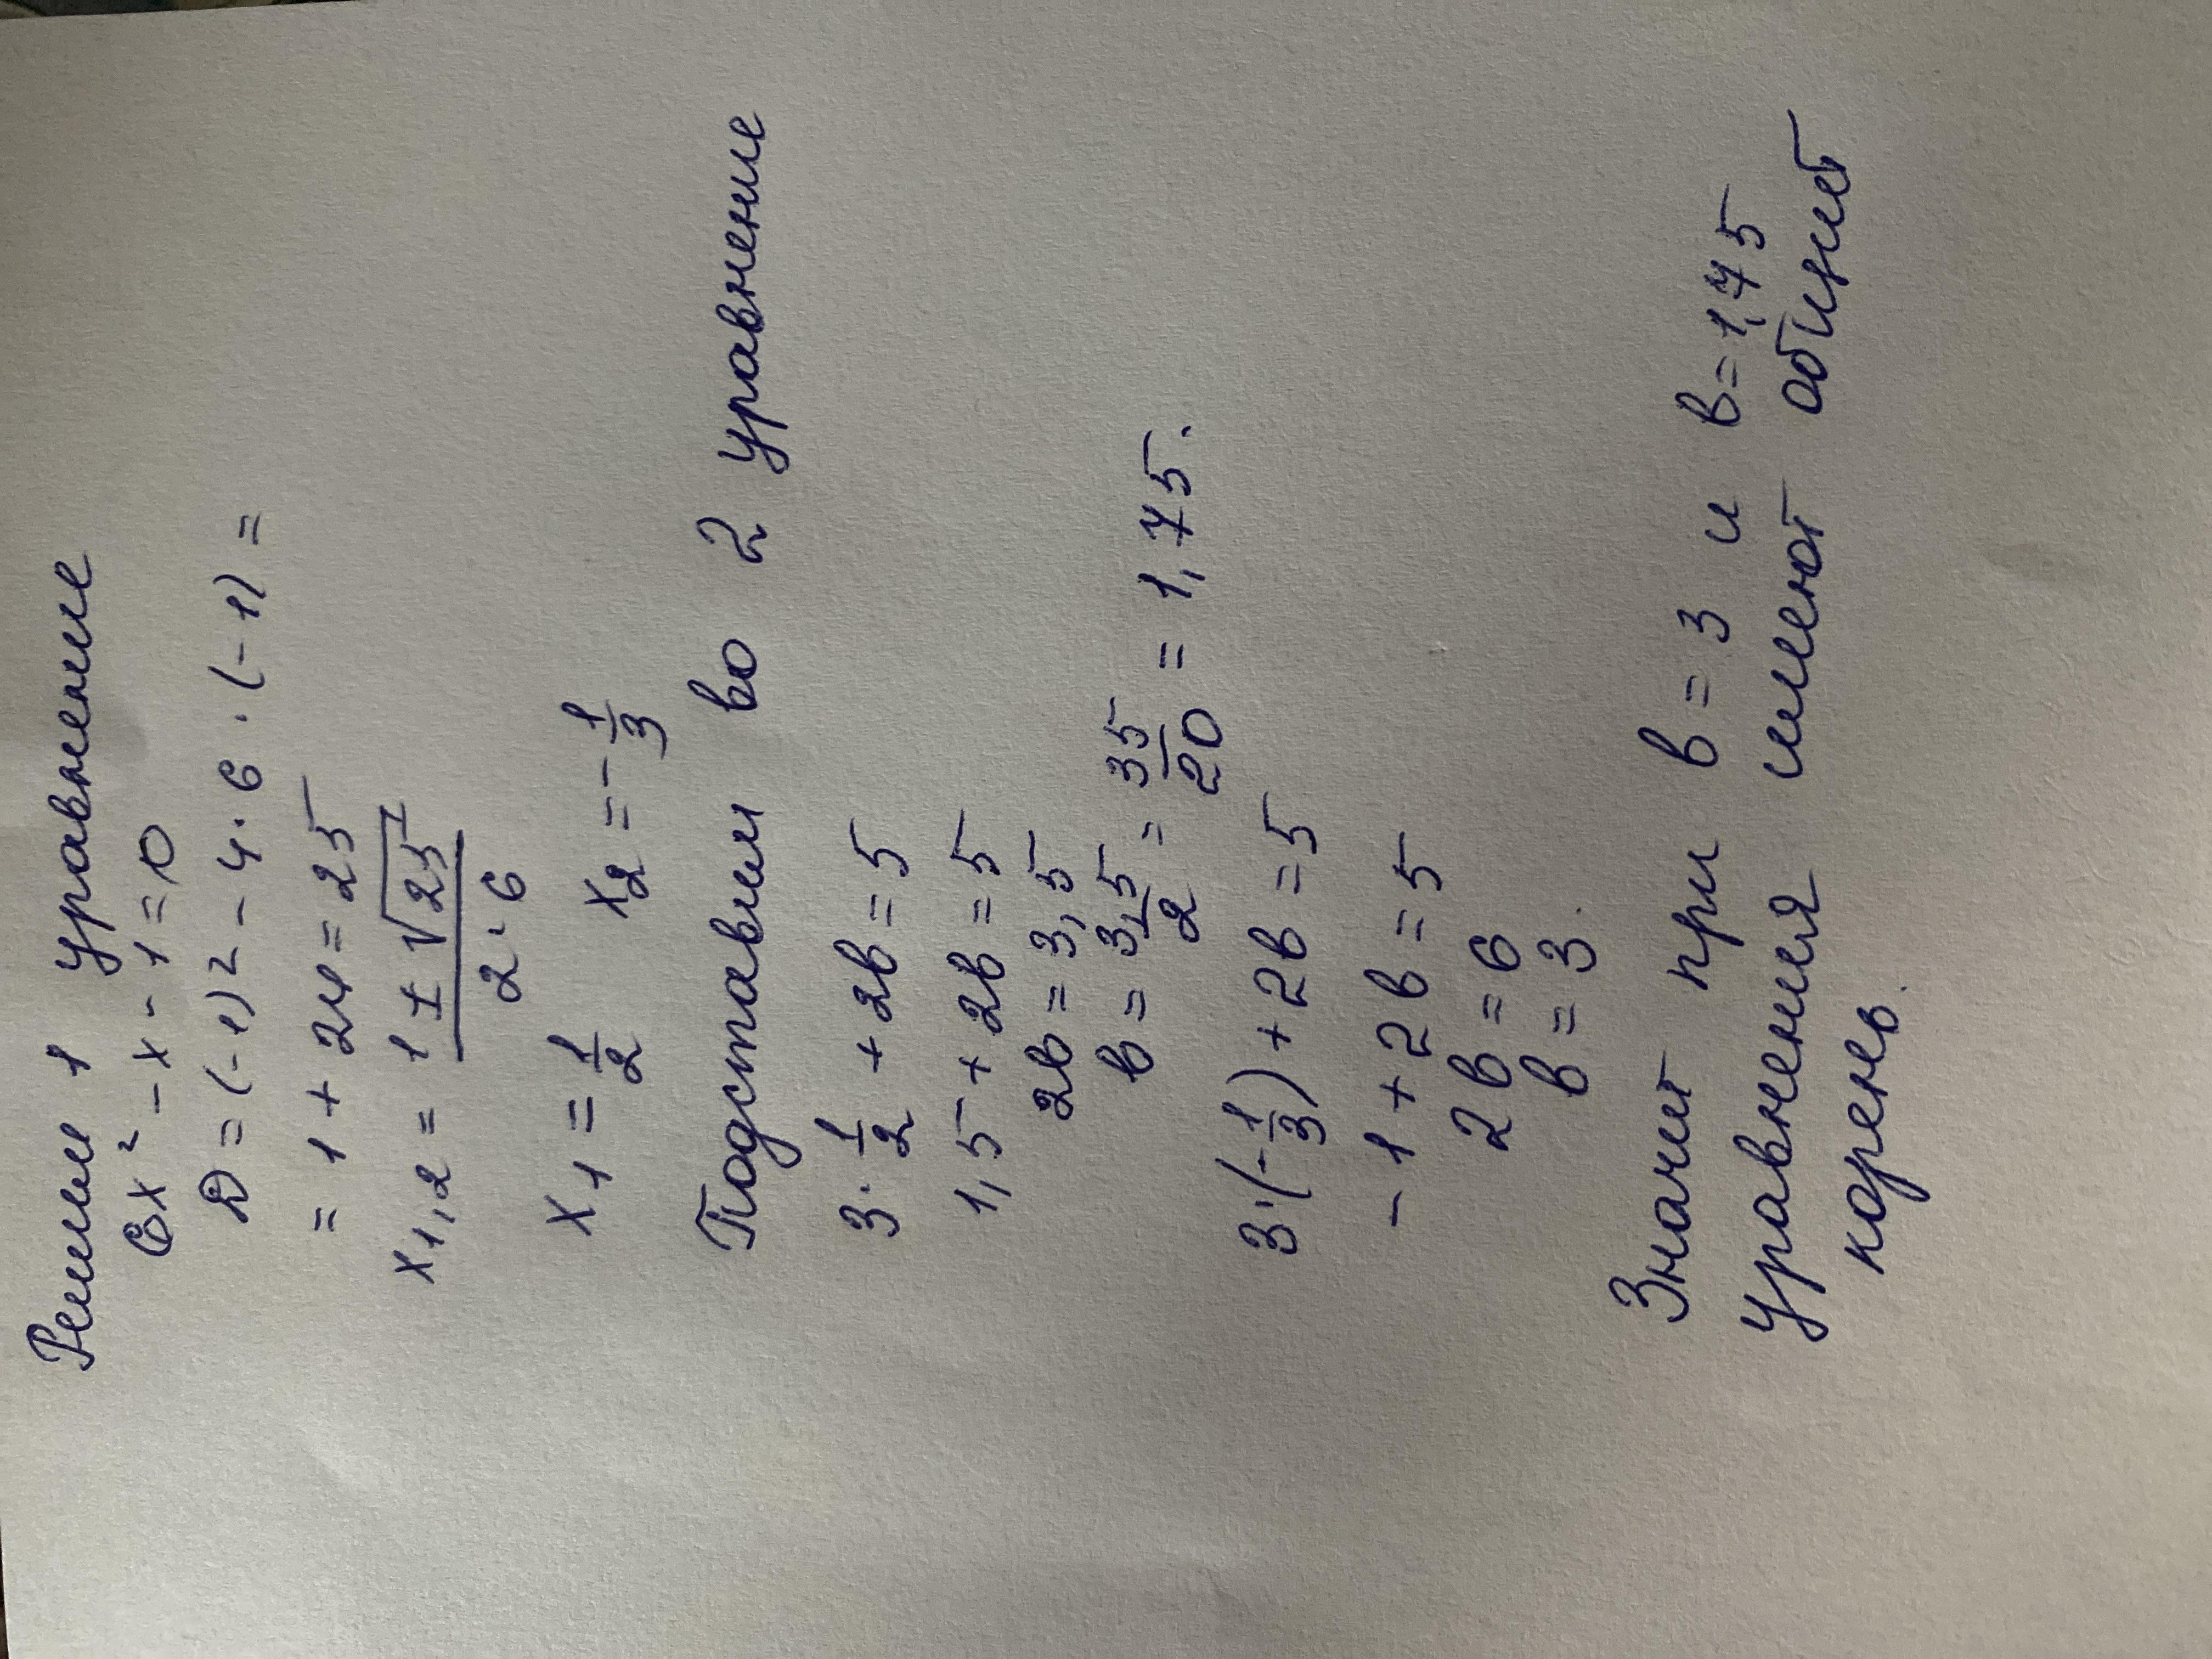 Решим 1 уравнение
6x² - x - 1 = 0
D = (-1)² - 4 · 6 · (-1) =
= 1 + 24 = 25
x1,2 = (1 ± √25) / (2 · 6)
x1 = 1/2 x2 = -1/3
Подставим во 2 уравнение
3 · 1/2 + 2в = 5
1,5 + 2в = 5
2в = 3,5
в = 3,5/2 = 35/20 = 1,75.
3 · (-1/3) + 2в = 5
-1 + 2в = 5
2в = 6
в = 3.
Значит при в = 3 и в = 1,75
уравнения имеют общий
корень.